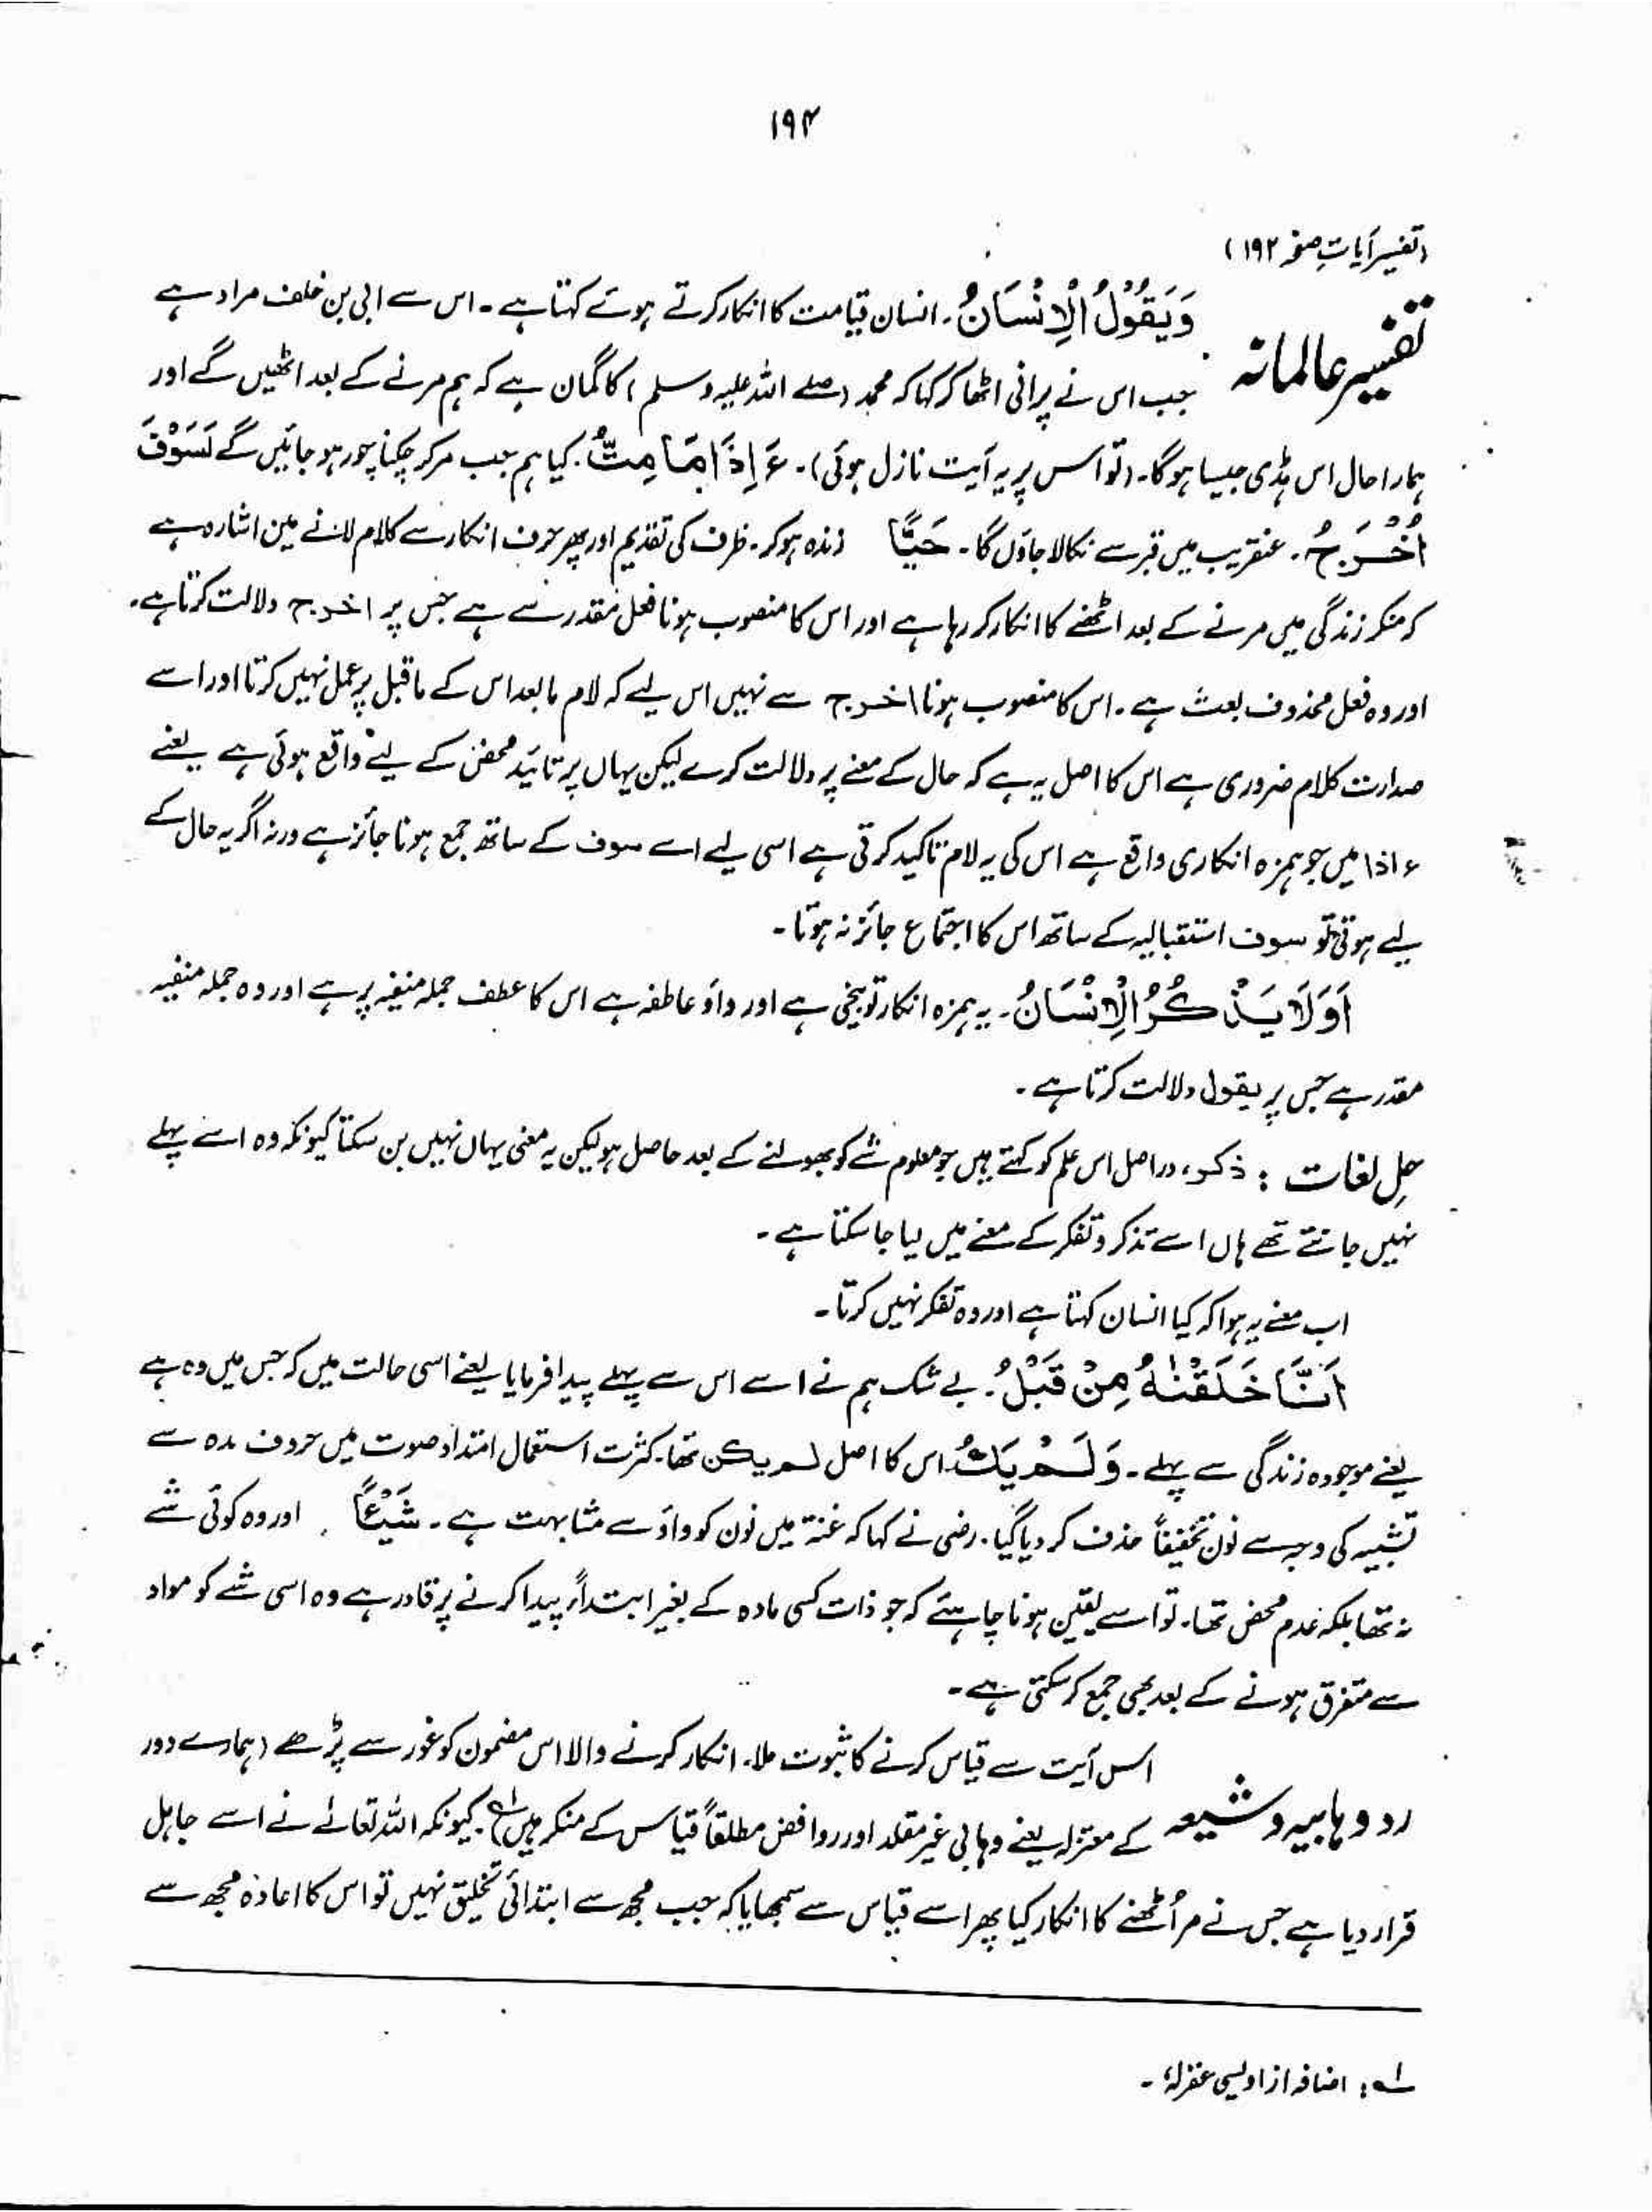 ۱۹۴
(تفسیر آیاتِ صفحہ ۱۹۲)
تفسیر عالمانہ
وَيَقُوْلُ الْاِنْسَانُ۔ انسان قیامت کا انکار کرتے ہوئے کہتا ہے۔ اس سے ابی بن خلف مراد ہے
جب اس نے پرانی اٹھا کر کہا کہ محمد (صلے اللہ علیہ وسلم) کا گمان ہے کہ ہم مرنے کے بعد اٹھیں گے اور
ہمارا حال اس ہڈی جیسا ہوگا۔ (تو اس پر یہ آیت نازل ہوئی)۔ ءَاِذَا مَا مِتُّ۔ کیا ہم جب مر کر چکنا چور ہو جائیں گے لَسَوْفَ
اُخْرَجُ۔ عنقریب میں قبر سے نکالا جاؤں گا۔ حَيًّا زندہ ہو کر۔ ظرف کی تقدیم اور پھر حرف انکار سے کلام لانے میں اشارہ ہے
کہ منکر زندگی میں مرنے کے بعد اٹھنے کا انکار کر رہا ہے اور اس کا منصوب ہونا فعل مقدر سے ہے جس پر اخرج دلالت کرتا ہے۔
اور وہ فعل محذوف بعث ہے۔ اس کا منصوب ہونا اخرج سے نہیں اس لیے کہ لام مابعد اس کے ماقبل پر عمل نہیں کرتا اور اسے
صدارت کلام ضروری ہے اس کا اصل یہ ہے کہ حال کے معنے پر دلالت کرے لیکن یہاں پر تائید محض کے لیے واقع ہوئی ہے یعنے
ءاذا میں جو ہمزہ انکاری واقع ہے اس کی یہ لام تاکید کرتی ہے اسی لیے اسے سوف کے ساتھ جمع ہونا جائز ہے ورنہ اگر یہ حال کے
لیے ہوتی تو سوف استقبالیہ کے ساتھ اس کا اجتماع جائز نہ ہوتا۔
اَوَلَا يَذْكُرُ الْاِنْسَانُ۔ یہ ہمزہ انکار توبیخی ہے اور واؤ عاطفہ ہے اس کا عطف جملہ منفیہ پر ہے اور وہ جملہ منفیہ
مقدر ہے جس پر یقول دلالت کرتا ہے۔
حل لغات : ذکر، دراصل اس علم کو کہتے ہیں جو معلوم شے کو بھولنے کے بعد حاصل ہو لیکن یہ معنی یہاں نہیں بن سکتا کیونکہ وہ اسے پہلے
نہیں جانتے تھے ہاں اسے تذکر و تفکر کے معنے میں لیا جا سکتا ہے۔
اب معنے یہ ہوا کہ کیا انسان کہتا ہے اور وہ تفکر نہیں کرتا۔
اَنَّا خَلَقْنٰهُ مِنْ قَبْلُ۔ بے شک ہم نے اسے اس سے پہلے پیدا فرمایا یعنے اسی حالت میں کہ جس میں وہ ہے
یعنے موجودہ زندگی سے پہلے۔ وَلَمْ يَكُ اس کا اصل لم یکن تھا۔ کثرت استعمال امتداد صوت میں حروف مدہ سے
تشبیہ کی وجہ سے نون تخفیفاً حذف کر دیا گیا۔ رضی نے کہا کہ غنہ میں نون کو واؤ سے مشابہت ہے۔ شَيْـًٔا اور وہ کوئی شے
نہ تھا بلکہ عدم محض تھا۔ تو اسے یقین ہونا چاہیئے کہ جو ذات کسی مادہ کے بغیر ابتداءً پیدا کرنے پر قادر ہے وہ اسی شے کو مواد
سے متفرق ہونے کے بعد بھی جمع کر سکتی ہے۔
اس آیت سے قیاس کرنے کا ثبوت ملا۔ انکار کرنے والا اس مضمون کو غور سے پڑھے (ہمارے دور
رد وہابیہ و شیعہ
کے معتزلہ یعنے وہابی غیر مقلد اور روافض مطلقاً قیاس کے منکر ہیں)۱؎ کیونکہ اللہ تعالےٰ نے اسے جاہل
قرار دیا ہے جس نے مر اُٹھنے کا انکار کیا پھر اسے قیاس سے سمجھایا کہ جب مجھ سے ابتدائی تخلیق نہیں تو اس کا اعادہ مجھ سے
۱؎ : اضافہ از اویسی غفرلہٗ۔